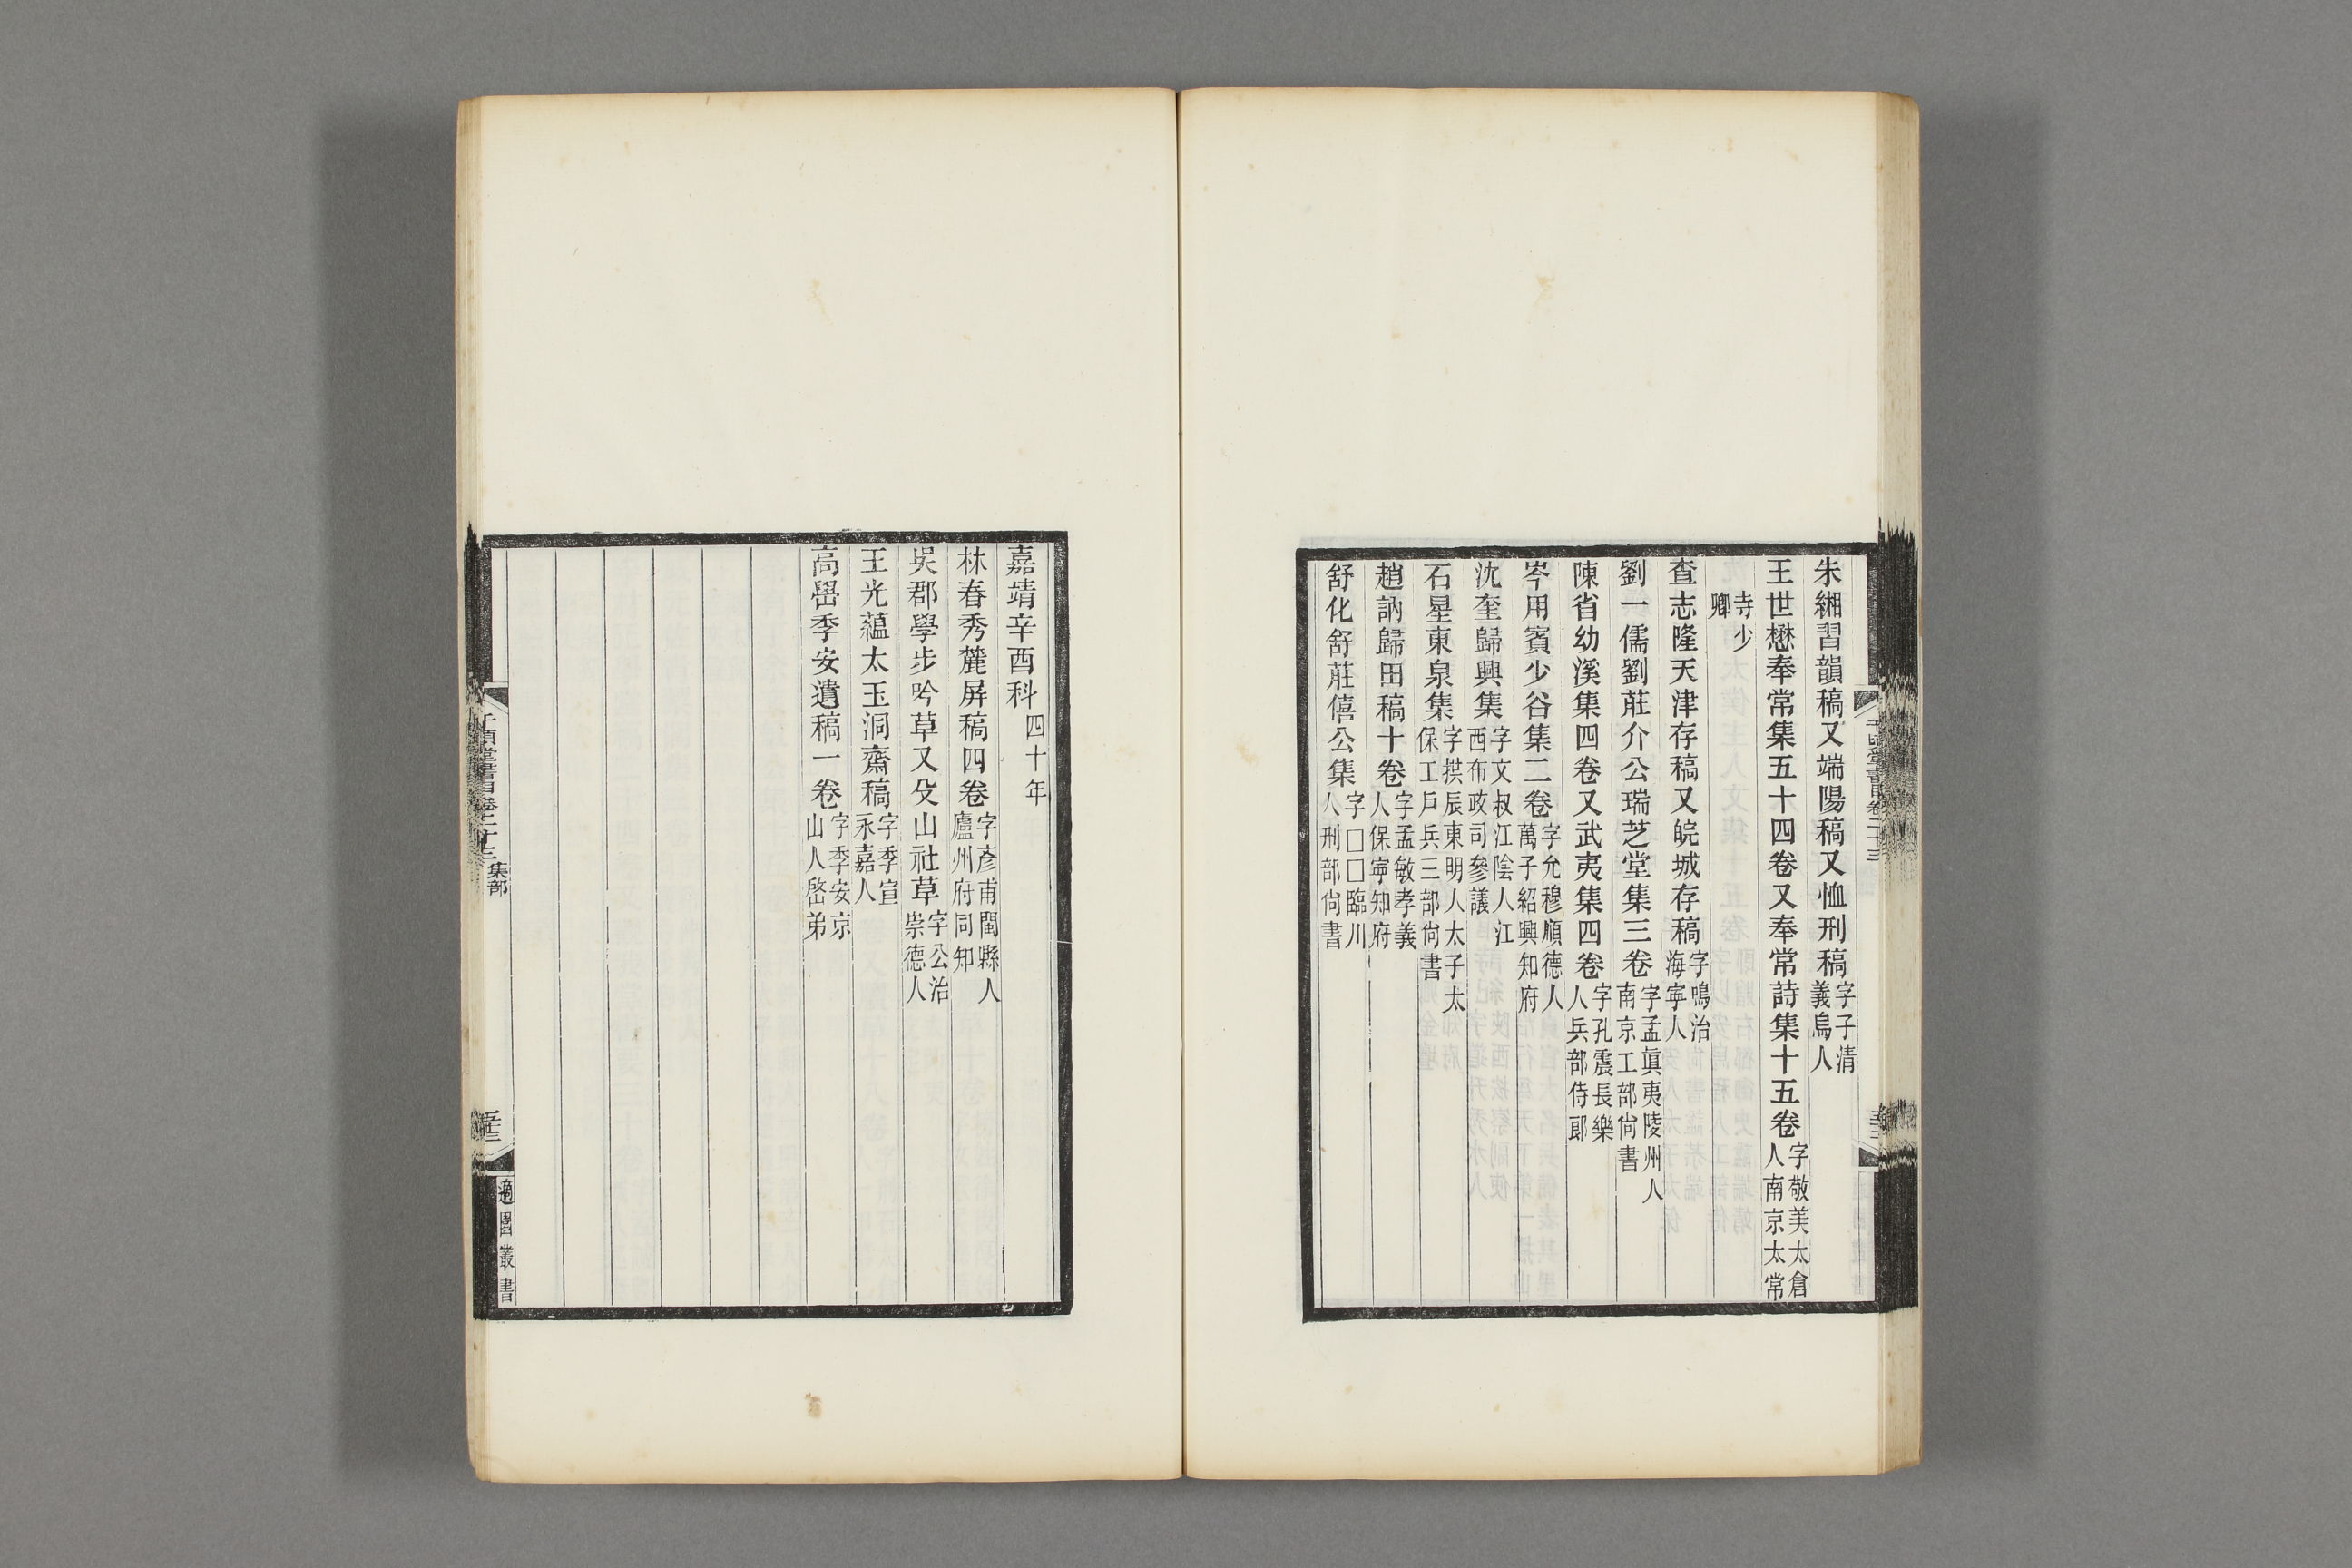 朱緗習韻稿又端陽稿又恤刑稿字子清義烏人
王世懋奉常集五十四卷又奉常詩集十五卷字敬美太倉人南京太常
寺少卿
查志隆天津存稿又皖城存稿字鳴治海寧人
劉一儒劉莊介公瑞芝堂集三卷字孟眞夷陵州人南京工部尚書
陳省幼溪集四卷又武夷集四卷字孔震長樂人兵部侍郎
岑用賓少谷集二卷字允穆順德人萬子紹興知府
沈奎歸興集字文叔江陰人江西布政司參議
石星東泉集字拱辰東明人太子太保工戶兵三部尚書
趙訥歸田稿十卷字孟敏孝義人保寧知府
舒化舒莊僖公集字□□臨川人刑部尚書
嘉靖辛酉科四十年
林春秀麓屏稿四卷字彥甫閩縣人廬州府同知
吳郡學步吟草又殳山社草字公治崇德人
王光蘊太玉洞齋稿字季宣永嘉人
高嵒季安遺稿一卷字季安京山人啓弟
千頃堂書目卷二十三 集部
五十三
適園叢書